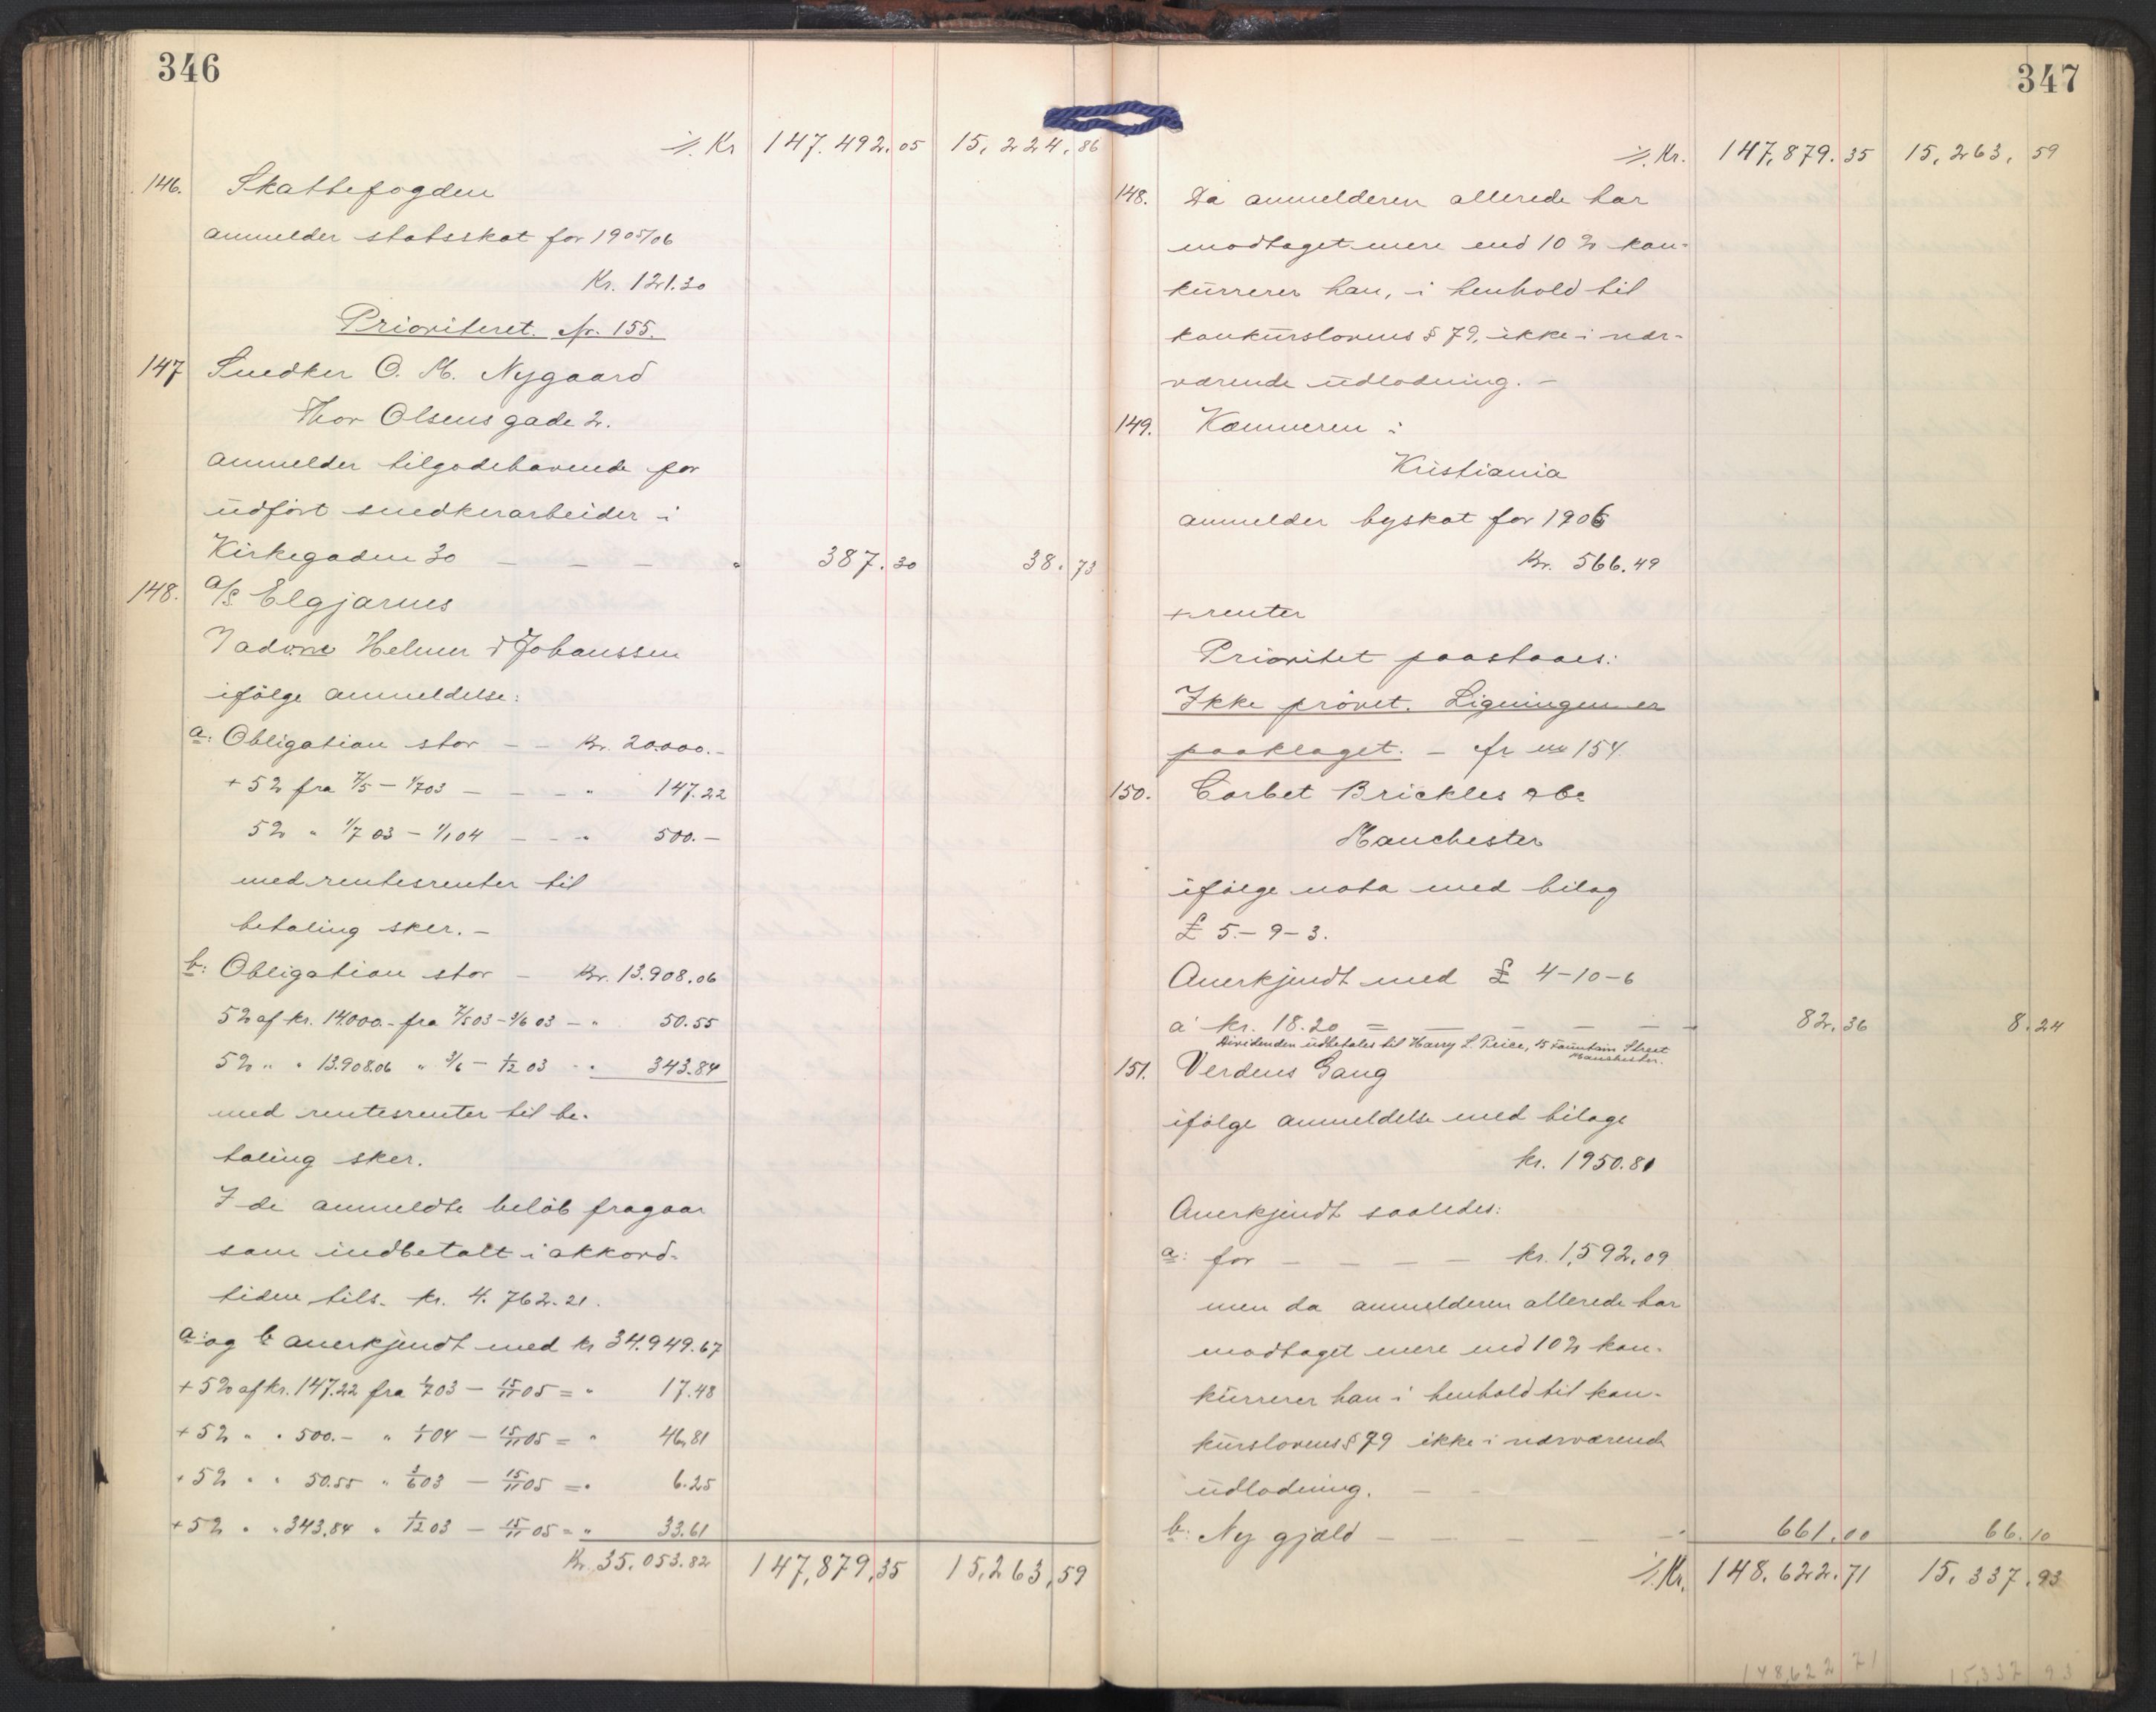 346
⁒. Kr 147.492.05 15,224.86
146. Skattefogden
anmelder statsskat for 1905/06
Kr. 121.30
Prioriteret. fr. 155.
147 Snedker O. M. Nygaard
Thor Olsens gade 2.
anmelder tilgodehavende for
udført snedkerarbeider i
Kirkegaden 30 — — — " 387.30 38.73
148. a/s Elgjarnes
v/ adv. Helmer & Johanssen
ifølge anmeldelse:
a: Obligation stor — — Kr. 20.000.-
+ 5% fra 7/5 – 1/7 03 — — — " 147.22
5% " 1/7 03 – 1/1 04 — — " 500.—
med rentesrenter til
betaling sker. —
b: Obligation stor — Kr. 13.908.06
5% af kr. 14.000.- fra 7/5 03 – 3/6 03 — " 50.55
5% " " 13.908.06 " 3/6 – 1/12 03 " " 343.84
med rentesrenter til be-
taling sker.
I de anmeldte beløb fragaar
som indbetalt i akkord-
tiden tils. kr. 4.762.21.
a: og b anerkjendt med kr 34.949.67
+ 5% af kr. 147.22 fra 1/7 03 – 15/11 05 = " 17.48
+ 5% " " 500.– " 1/1 04 – 15/11 05 = " 46,81
+ 5% " " 50.55 " 3/6 03 – 15/11 05 = " 6.25
+ 5% " " 343.84 " 1/12 03 – 15/11 05 = " 33.61
Kr. 35,053.82 147,879,35 15,263,59
347
⁒. Kr. 147,879.35 15,263,59
148. Da anmelderen allerede har
modtaget mere end 10% kon-
kurrerer han, i henhold til
konkurslovens § 79, ikke i nær-
værende udlodning. —
149. Kæmneren i
Kristiania
anmelder byskat for 1906
Kr. 566.49
+ renter
Prioritet paastaaes:
Ikke prøvet. Ligningen er
paaklaget. — fr 154.
150. Corbet Brickles & Co
Manchester
ifølge nota med bilag
£ 5.–9–3.
Anerkjendt med £ 4–10–6
a' kr. 18.20 = — — — — 82.36 8.24
Dividenden udbetales til Harry L. Price, 15 Fountain Street
Manchester.
151. Verdens Gang
ifølge anmeldelse med bilage
kr. 1950.81
Anerkjendt saaledes:
a: for — — — — kr. 1,592.09
men da anmelderen allerede har
modtaget mere end 10% kon-
kurrerer han i henhold til kon-
kurslovens § 79 ikke i nærværende
udlodning. —
b: Ny gjæld — — — — — " 661.00 66.10
⁒. Kr. 148.622.71 15,337.93
148,622 71 15,337 93